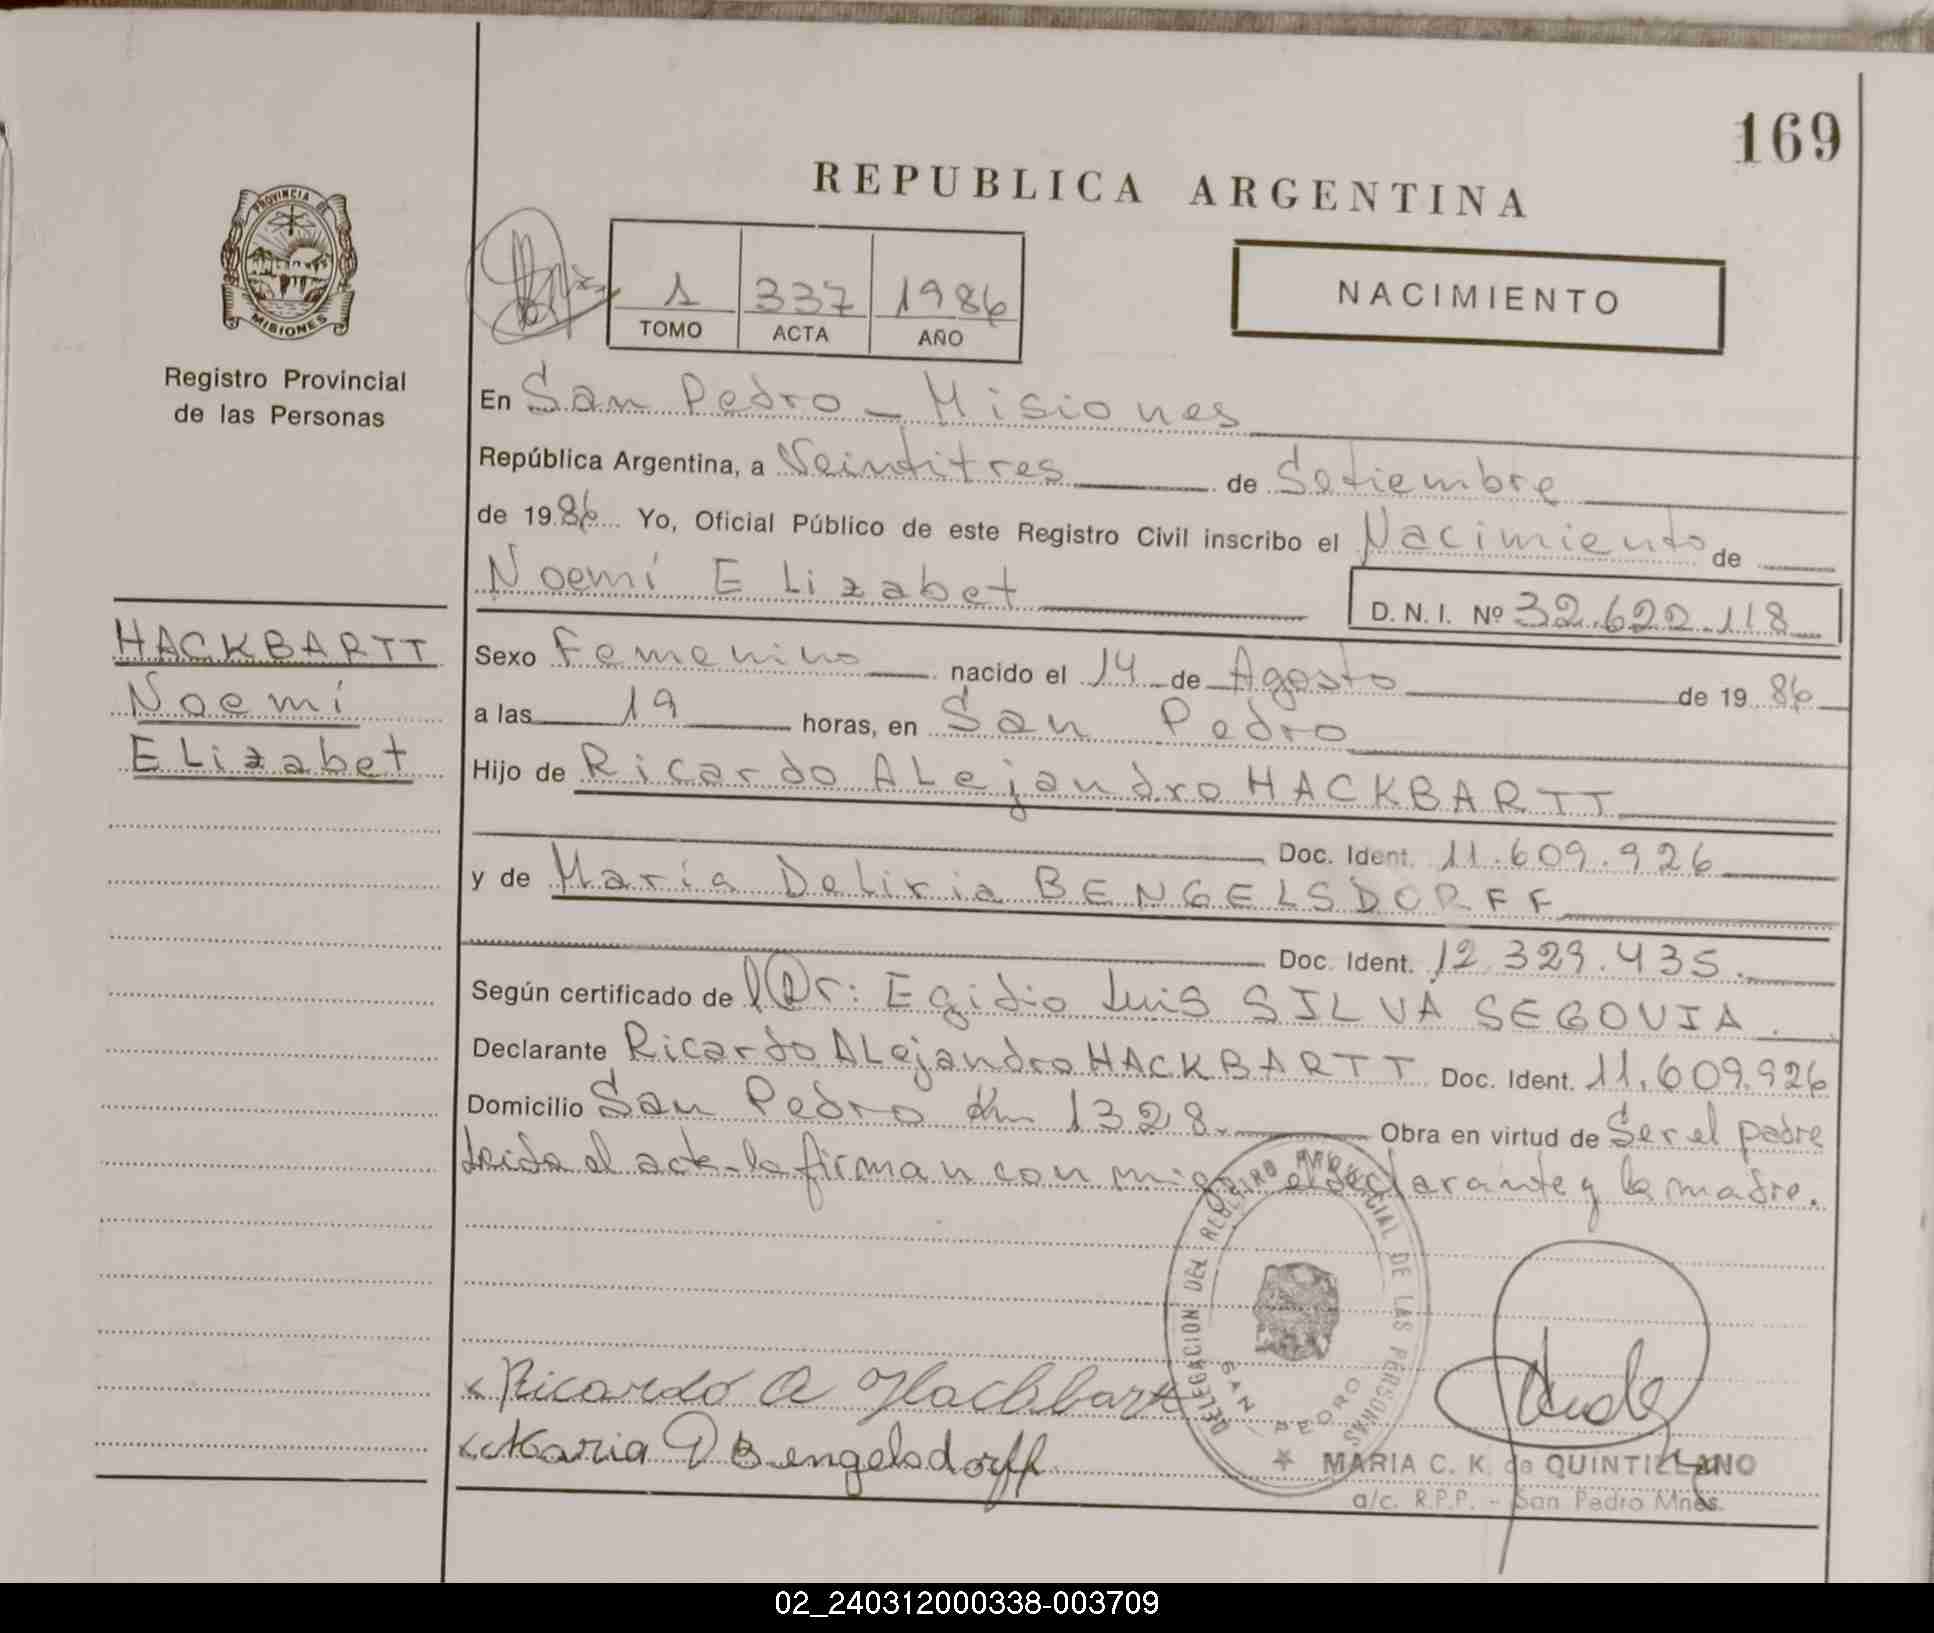 169
REPUBLICA ARGENTINA
PROVINCIA DE
MISIONES
Registro Provincial
de las Personas
1 337 1986
TOMO ACTA AÑO
NACIMIENTO
En San Pedro - Misiones
República Argentina, a Veintitres de Setiembre
de 1986 Yo, Oficial Público de este Registro Civil inscribo el Nacimiento de
Noemí Elizabet
D. N. I. Nº 32.622.118
HACKBARTT
Noemí
Elizabet
Sexo Femenino nacido el 14 de Agosto de 1986
a las 19 horas, en San Pedro
Hijo de Ricardo Alejandro HACKBARTT
Doc. Ident. 11.609.926
y de María Deliria BENGELSDORFF
Doc. Ident. 12.329.435.
Según certificado de l Dr: Egidio Luis SILVA SEGOVIA.
Declarante Ricardo Alejandro HACKBARTT Doc. Ident. 11.609.926
Domicilio San Pedro Km 1328. Obra en virtud de Ser el padre
Leida el acta la firman con migo el declarante y la madre.
DELEGACION DEL REGISTRO PROVINCIAL DE LAS PERSONAS
SAN PEDRO
Ricardo A Hackbart
Maria D Bengelsdorff
MARIA C. K. de QUINTILLANO
a/c. R.P.P. - San Pedro Mnes.
02_240312000338-003709